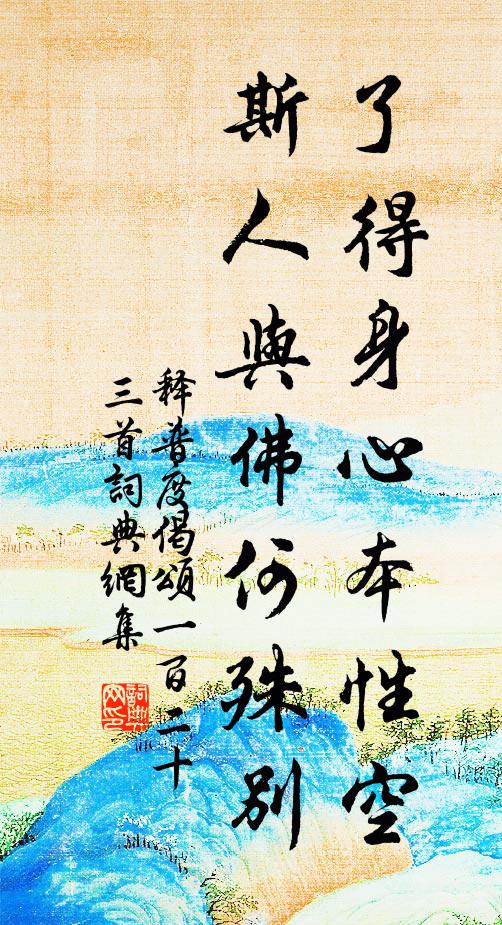 了得身心本性空
斯人與佛何殊別
释普度偈頌一百二十
三首詞典網集
詞典網印